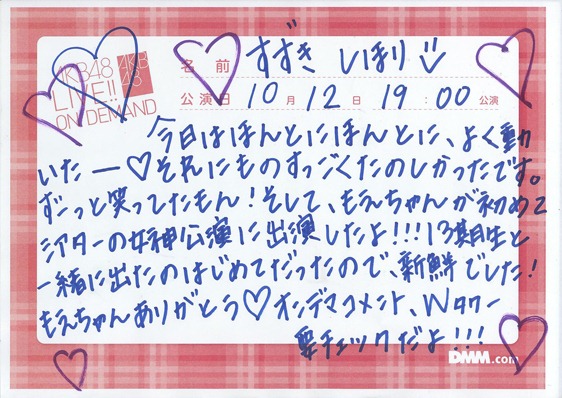 AKB48
LIVE!!
ON DEMAND
AKB
48
名 前 すずき しほり
公演日 10 月 12 日 19 : 00 公演
今日はほんとにほんとに、よく動
いたー♡それにものすっごくたのしかったです。
ずーっと笑ってたもん!そして、もえちゃんが初めて
シアターの女神公演に出演したよ!!!13期生と
一緒に出たのはじめてだったので、新鮮でした!
もえちゃんありがとう♡オンデマコメント、Wタワー
要チェックだよ!!!
DMM.com